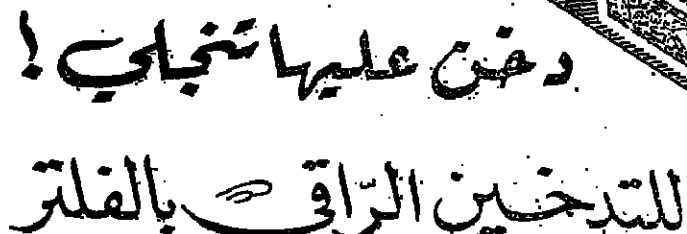 دخن عليها تنجلي !
للتدخين الرّاقي بالفلتر